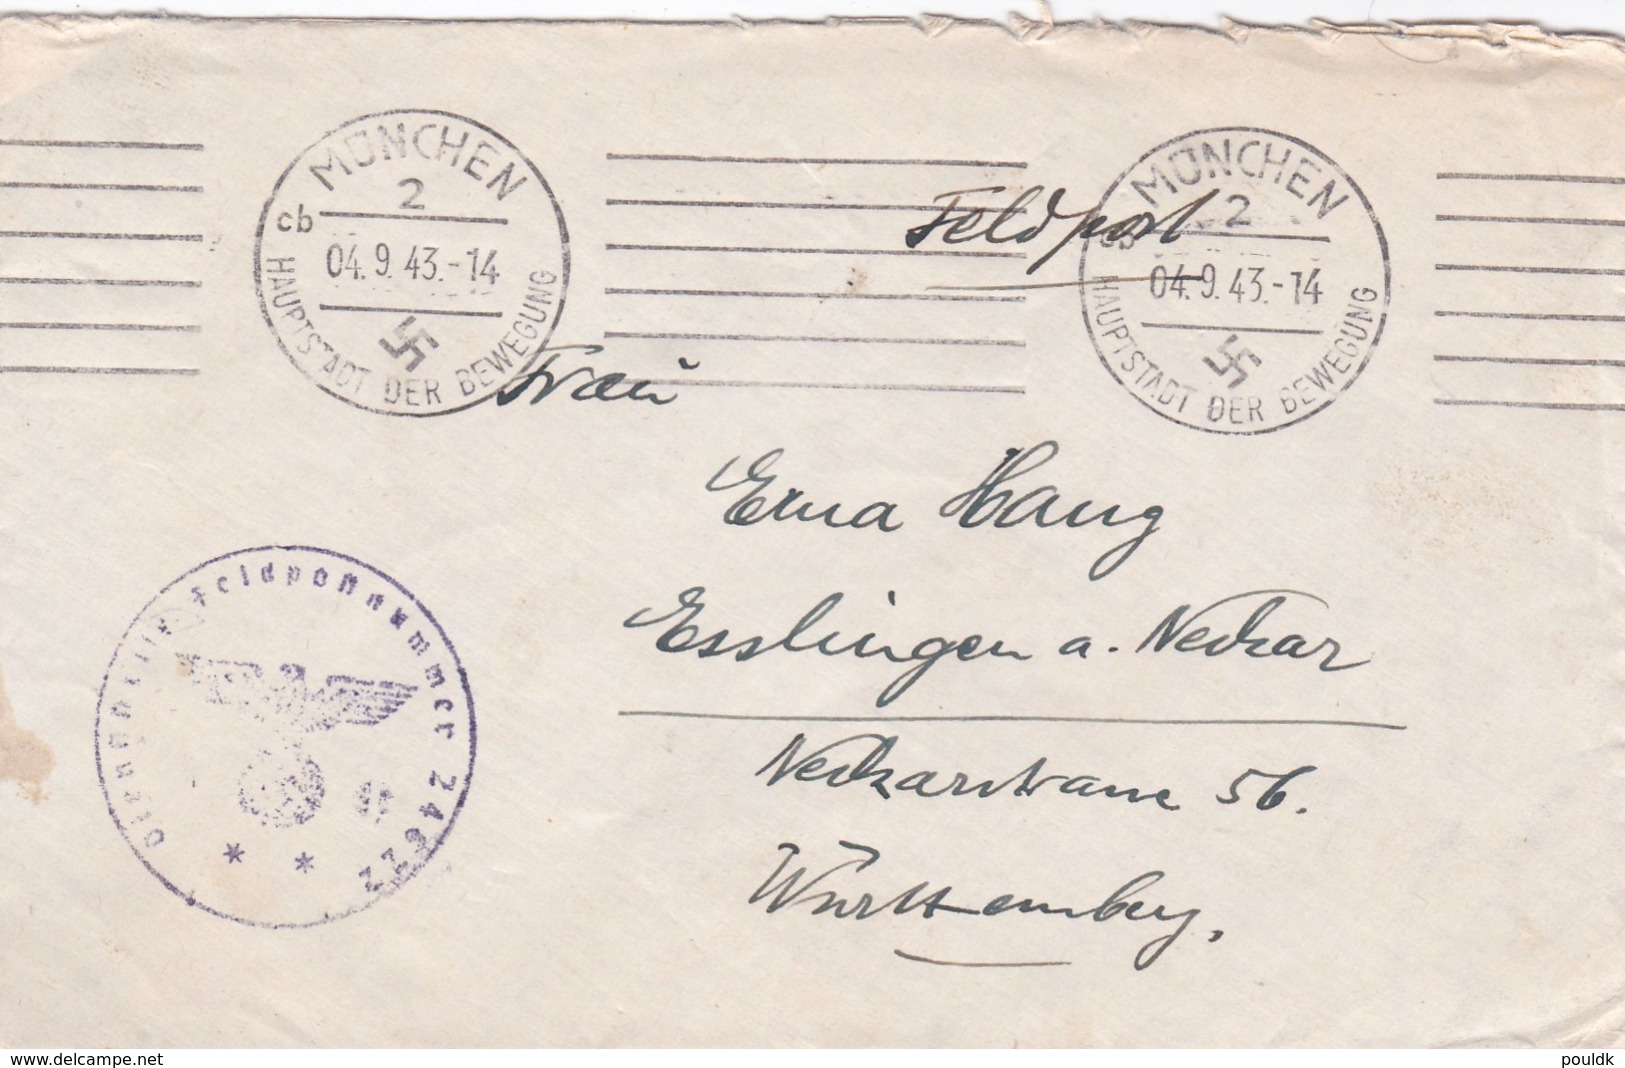 MÜNCHEN
2
cb
04.9.43.-14
HAUPTSTADT DER BEWEGUNG
MÜNCHEN
2
cb
04.9.43.-14
HAUPTSTADT DER BEWEGUNG
Feldpost
Frau
Erna Haug
Esslingen a. Neckar
Neckarstrasse 56.
Württemberg.
Dienststelle Feldpostnummer 24622
* *
www.delcampe.net
pouldk